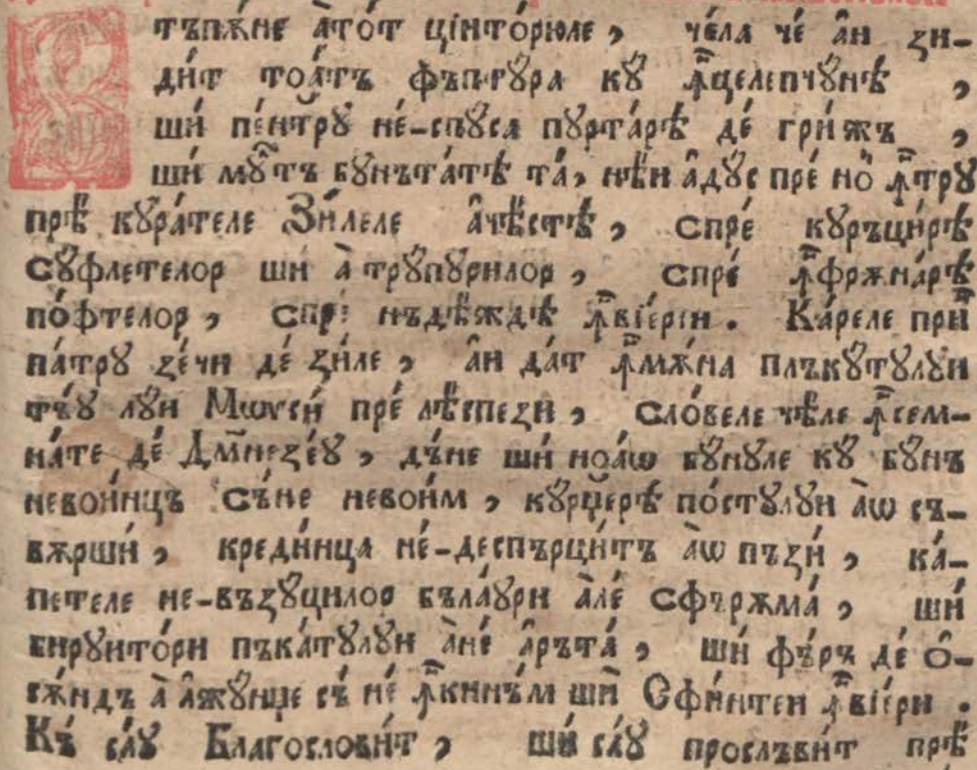 Стъпѫ́не а҆то́т ці́нто́рюле, че́ла че́ а҆н ꙁи-
ди́т тоа́тъ фъптꙋ́ра кꙋ̀ ꙟ҆целепчꙋ́нѣ,
ши́ пе́нтрꙋ не́-спꙋ́са пꙋрта́рѣ де́ гри́жъ,
ши́ мꙋ́тъ бꙋнъта́тѣ та̀, нѣ́и а҆дꙋ́с пре́ но́и ꙟ҆трꙋ
прѣ́ кꙋра́теле Ꙁи́леле а҆чѣ́стѣ, спре́ кꙋръци́рѣ
сꙋ́флетелор ши́ а҆ трꙋ́пꙋрилор, спре́ ꙟ҆фрѫна́рѣ
по́фтелор, спре́ нъдѣ́ждѣ ꙟ҆віе́рїи. Ка́реле при́н
па́трꙋ ꙁе́чи де́ ꙁи́ле, а҆н да́т ꙟ҆мѫ́на плъкꙋ́тꙋлꙋи
тъ́ꙋ лꙋи Мѡѵси́ пре́ лѣ́спеꙁи, сло́веле чѣ́ле ꙟ҆сем-
на́те де́ Дм҃неꙁе́ꙋ, дъ́не ши́ ноа́ѡ бꙋ́нꙋле кꙋ̀ бꙋ́нъ
невои́нцъ съ́не невои́м, кꙋ́рꙋ́ерѣ по́стꙋлꙋи а҆ѡ съ-
вѫрши́, креди́нца не́-деспърци́тъ а҆ѡ пъꙁи́, ка́-
петеле не-въꙁꙋ́цилор бъла́ꙋри а҆ле́ сфъръмѫ́, ши́
бирꙋито́ри пъка́тꙋлꙋи а҆не́ а҆ръта́, ши́ фъ́ръ де́ ѻ҆-
сѫ́ндъ а҆ а҆жꙋ́нце съ́ не́ ꙟ҆кинъ́м ши́ Сфи́нтеи ꙟ҆віе́ри.
Къ́ сл́ꙋ Благослови́т, ши́ сл́ꙋ прославѣ́т прѣ́